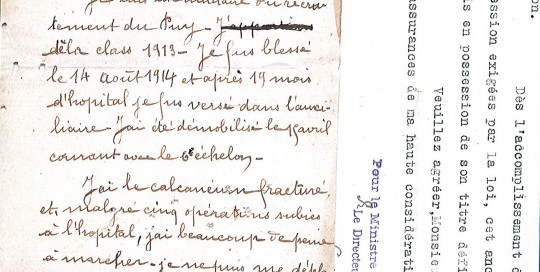 tement du Puy - J'appartiens
de la class 1913 - Je fus blessé
le 14 août 1914 et après 19 mois
d'hopital je fus versé dans l'auxi-
liaire - J'ai été démobilisé le 5 avril
courant avec le 6e échelon -
J'ai le calcanéum fracturé
et, malgré cinq opérations subies
à l'hopital, j'ai beaucoup de peine
à marcher - je ne puis me dépla
on.
Dès l'accomplissement d
ession exigées par la loi, cet an
is en possession de son titre défi
Veuillez agréer, Monsie
assurances de ma haute considérati
Pour le Ministre
Le Directeu